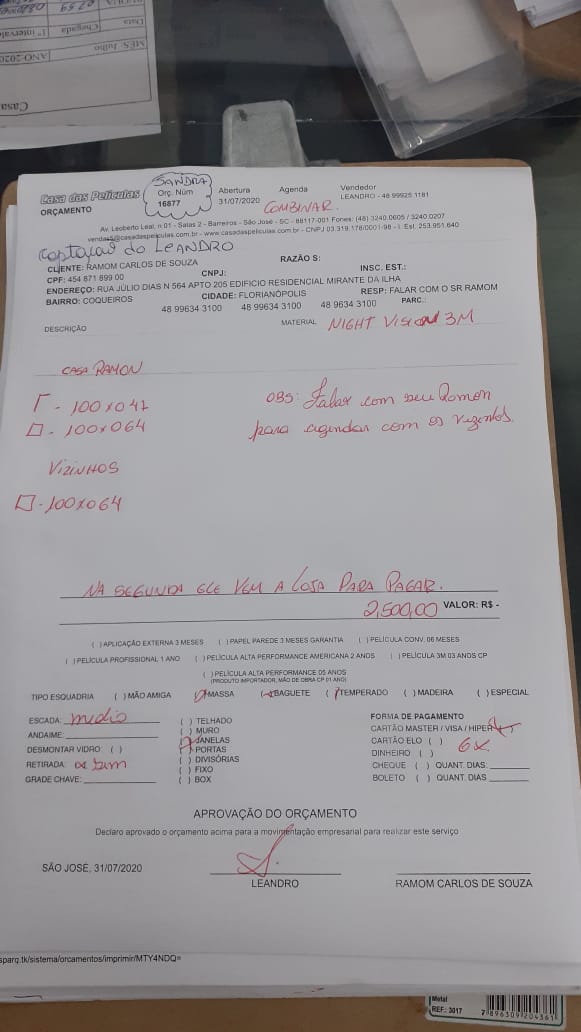 07:59
Data
Chegada
1º intervalo
MÊS: Julho
ANO-2020
Casa
Casa das Películas
ORÇAMENTO
SANDRA
Orç. Núm
16877
Abertura
31/07/2020
Agenda
COMBINAR.
Vendedor
LEANDRO - 48 99925 1181
Av. Leoberto Leal, n 01 - Salas 2 - Barreiros - São José - SC - 88117-001 Fones: (48) 3240.0605 / 3240.0207
vendas5@casadaspeliculas.com.br - www.casadaspeliculas.com.br - CNPJ 03.319.178/0001-98 - I. Est. 253.951.640
Captação do LEANDRO
CLIENTE: RAMOM CARLOS DE SOUZA
RAZÃO S:
CPF: 454 871 899 00
CNPJ:
INSC. EST.:
ENDEREÇO: RUA JÚLIO DIAS N 564 APTO 205 EDIFICIO RESIDENCIAL MIRANTE DA ILHA
BAIRRO: COQUEIROS
CIDADE: FLORIANÓPOLIS
RESP: FALAR COM O SR RAMOM
48 99634 3100 48 99634 3100 48 9634 3100
PARC.:
DESCRIÇÃO
MATERIAL NIGHT VISION 3M
CASA RAMON
- 100x047
- 100x064
OBS: Falar com seu Romon
para agendar com os vizinhos.
VIZINHOS
- 100x064
NA SEGUNDA ELE VEM A LOJA PARA PAGAR.
2,500,00 VALOR: R$ -
( ) APLICAÇÃO EXTERNA 3 MESES ( ) PAPEL PAREDE 3 MESES GARANTIA ( ) PELÍCULA CONV. 06 MESES
( ) PELÍCULA PROFISSIONAL 1 ANO ( ) PELÍCULA ALTA PERFORMANCE AMERICANA 2 ANOS ( ) PELÍCULA 3M 03 ANOS CP
( ) PELÍCULA ALTA PERFORMANCE 05 ANOS
(PRODUTO IMPORTADOR, MÃO DE OBRA CP 01 ANO)
TIPO ESQUADRIA ( ) MÃO AMIGA ( ) MASSA ( ) BAGUETE ( ) TEMPERADO ( ) MADEIRA ( ) ESPECIAL
ESCADA: medio
ANDAIME:
DESMONTAR VIDRO ( )
RETIRADA: sim
GRADE CHAVE:
( ) TELHADO
( ) MURO
( ) JANELAS
( ) PORTAS
( ) DIVISÓRIAS
( ) FIXO
( ) BOX
FORMA DE PAGAMENTO
CARTÃO MASTER / VISA / HIPER
CARTÃO ELO ( ) 6X.
DINHEIRO ( )
CHEQUE ( ) QUANT. DIAS:
BOLETO ( ) QUANT. DIAS
APROVAÇÃO DO ORÇAMENTO
Declaro aprovado o orçamento acima para a movimentação empresarial para realizar este serviço
SÃO JOSÉ, 31/07/2020
LEANDRO
RAMOM CARLOS DE SOUZA
sparq.tk/sistema/orcamentos/imprimir/MTY4NDQ=
Metal
REF.: 3017
7 896309 204361